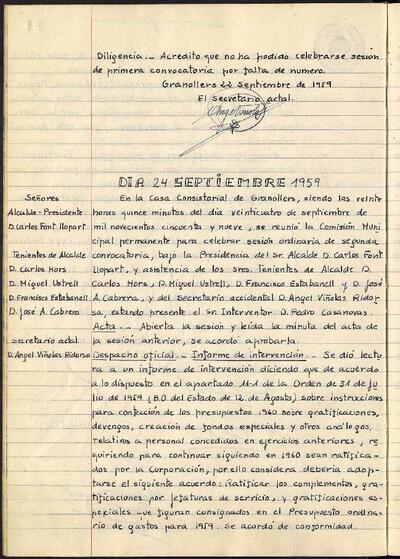 Diligencia.- Acredito que no ha podido celebrarse sesión
de primera convocatoria por falta de numero.
Granollers 22 Septiembre de 1959
El Secretario actal.
DIA 24 SEPTIEMBRE 1959
Señores
Alcalde-Presidente
D. Carlos Font Llopart
Tenientes de Alcalde
D. Carlos Hors
D. Miguel Ustrell
D. Francisco Estabanell
D. José A. Cabrera
Secretario actal.
D. Angel Viñolas Ridorsa
En la Casa Consistorial de Granollers, siendo las veinte
horas quince minutos del dia veinticuatro de septiembre de
mil novecientos cincuenta y nueve, se reunió la Comisión Muni
cipal permanente para celebrar sesión ordinaria de segunda
convocatoria, bajo la Presidencia del Sr. Alcalde D. Carlos Font
Llopart, y asistencia de los Sres. Tenientes de Alcalde D.
Carlos Hors, D. Miguel Ustrell, D. Francisco Estabanell y D. José
A. Cabrera, y del Secretario accidental D. Angel Viñolas Ridor
sa, estando presente el Sr. Interventor D. Pedro Casanovas.
Acta.- Abierta la sesión y leida la minuta del acta de
la sesión anterior, se acordó aprobarla.
Despacho oficial.- Informe de intervención.- Se dió lectu
ra a un informe de intervención diciendo que de acuerdo
a lo dispuesto en el apartado 11-1 de la Orden de 31 de Ju
lio de 1959 (B.O. del Estado de 12 de Agosto), sobre instrucciones
para confección de los presupuestos 1960 sobre gratificaciones,
devengos, creación de fondos especiales y otros análogos,
relativos a personal concedidos en ejercicios anteriores, re
quiriendo para continuar siguiendo en 1960 sean ratifica-
dos por la Corporación, por ello considera debería adop-
tarse el siguiente acuerdo: Ratificar los complementos, gra
tificaciones por jefaturas de servicio, y gratificaciones es-
peciales que figuran consignados en el Presupuesto ordina-
rio de gastos para 1959. Se acordó de conformidad.